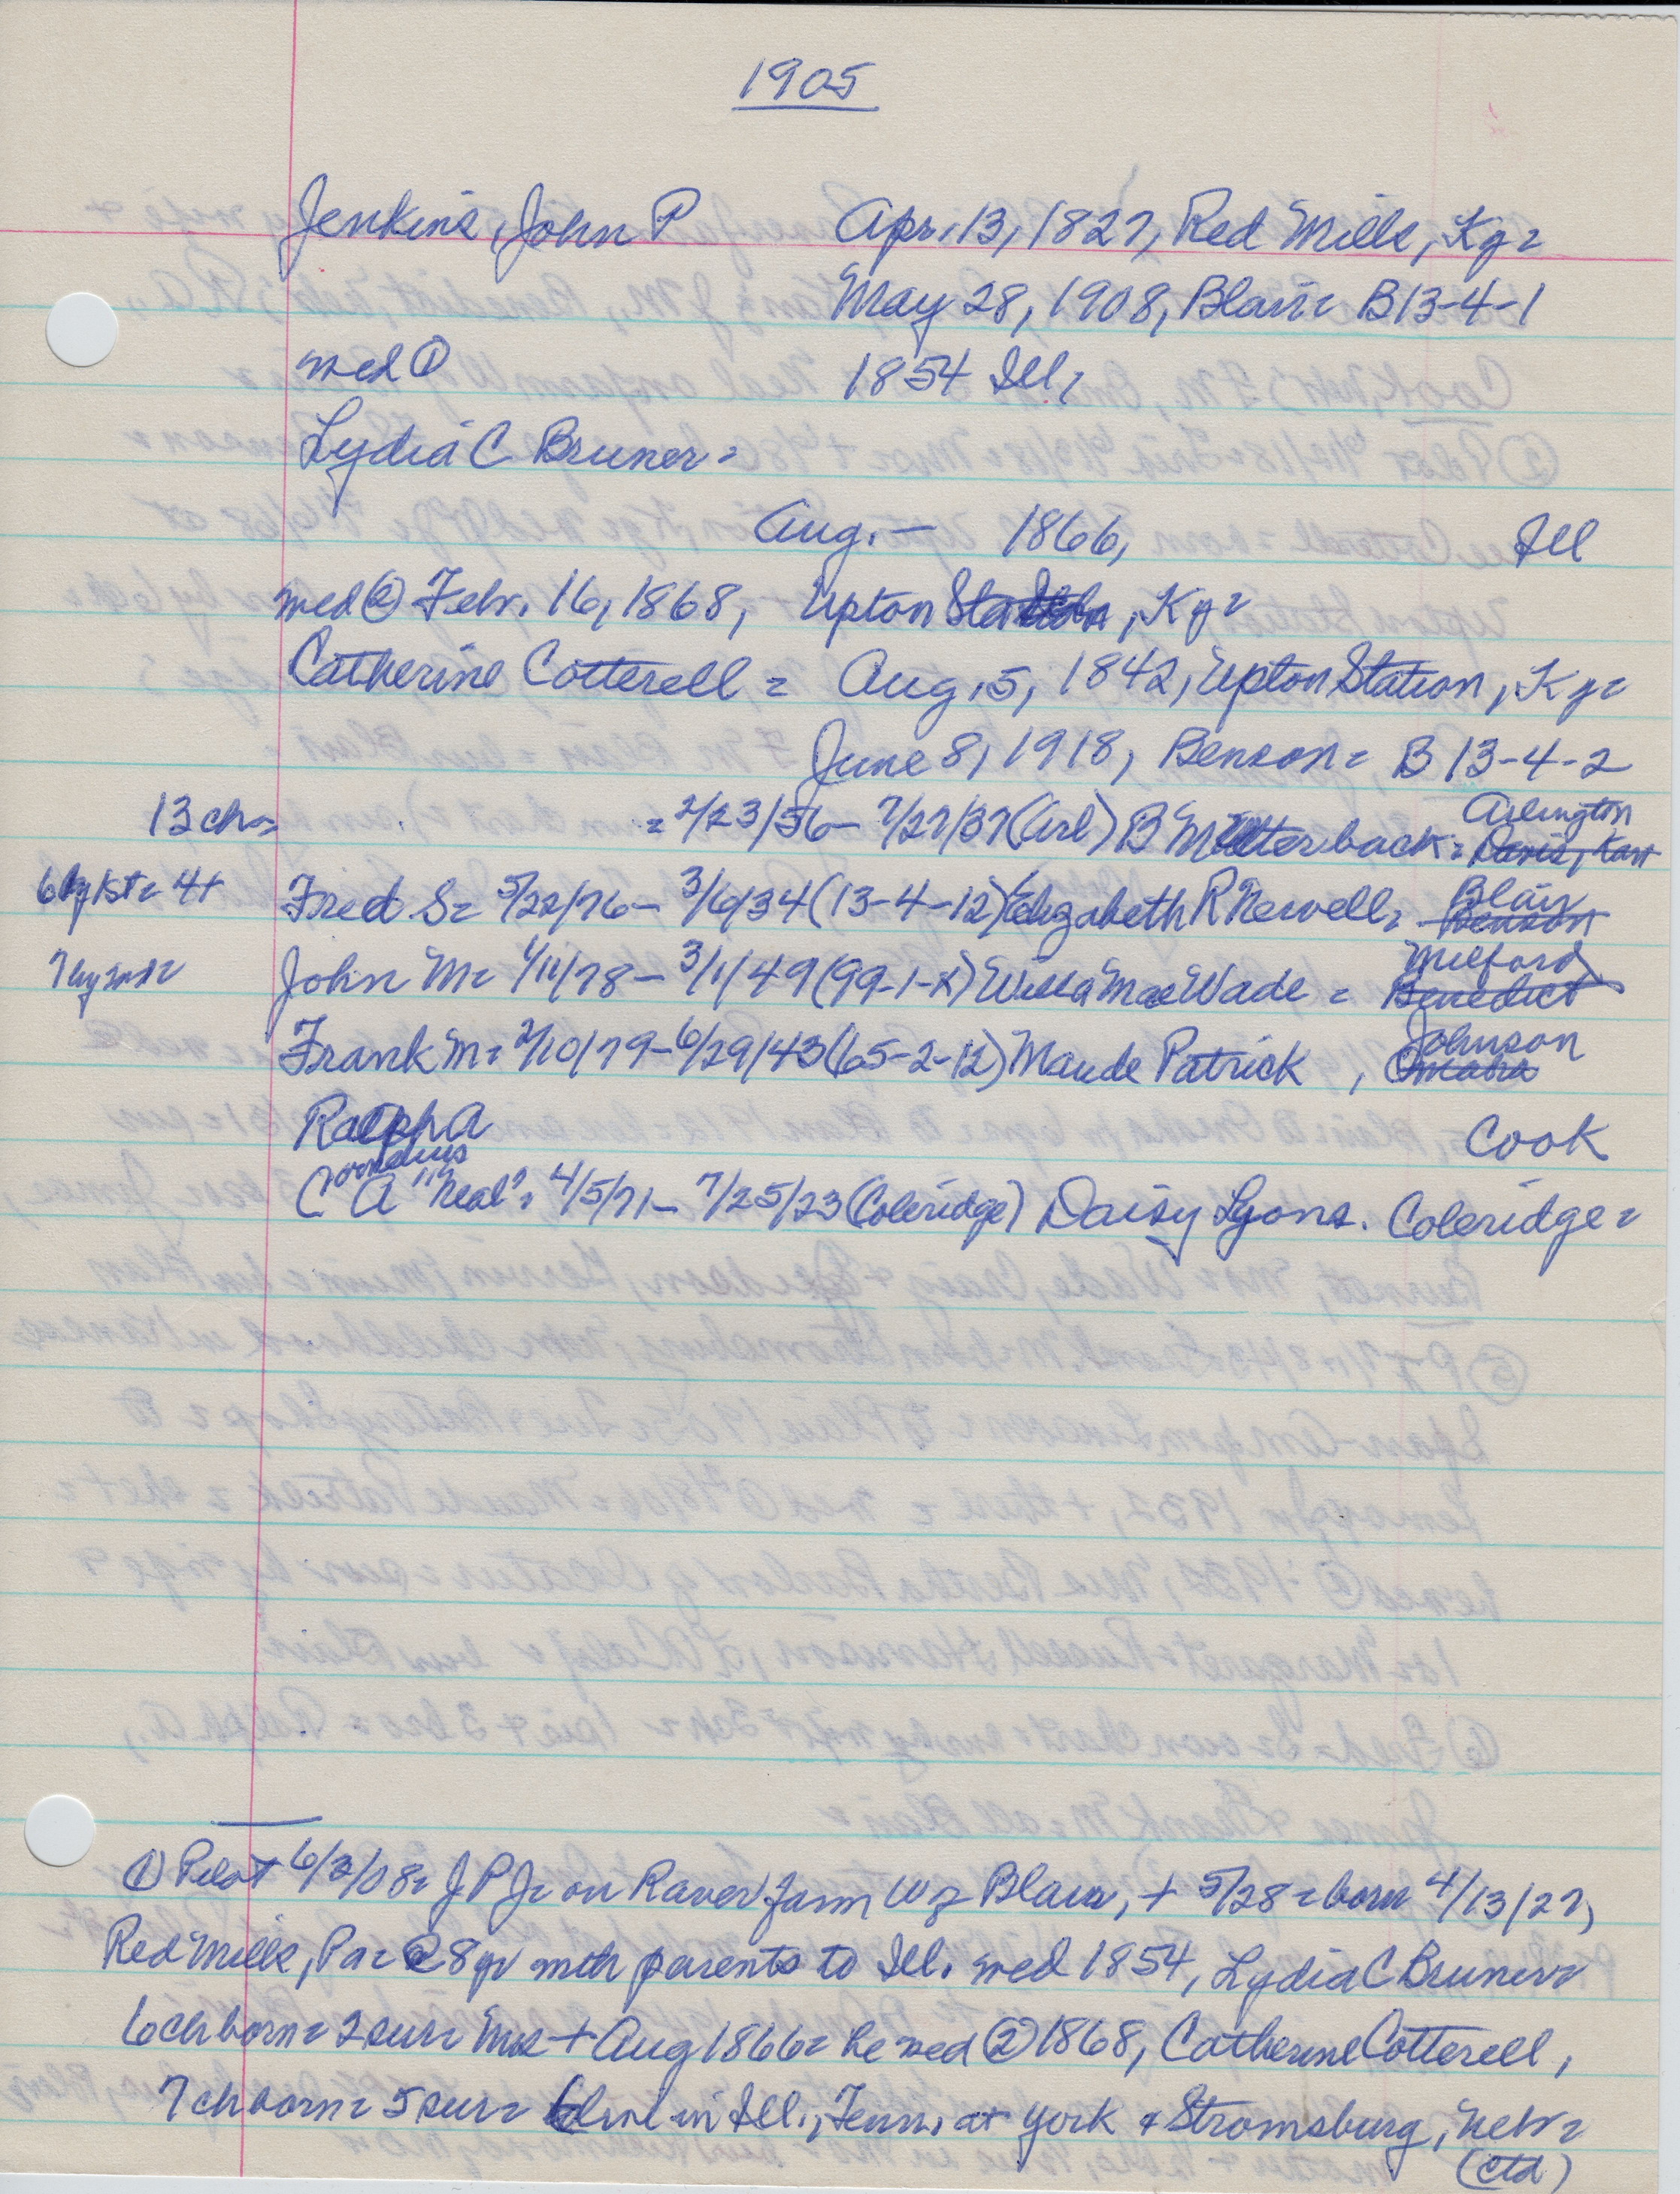 1905
Jenkins, John P Apr. 13, 1827, Red Mills, Ky =
May 28, 1908, Blair = B 13-4-1
wed ① 1854 Ill,
Lydia C Bruner =
Aug. — 1866, Ill
wed ② Febr. 16, 1868, Upton Station, Ky =
Catherine Cotterell = Aug. 5, 1842, Upton Station, Ky =
June 8, 1918, Benson = B 13-4-2
Arlington
13 ch = = 2/23/56 - 7/27/37 (Arl) B M Utterback =
Blair
6 by 1st = 4+ Fred S = 5/22/76 - 3/6/34 (13-4-12) Elizabeth R Newell = Benson
Milford
7 by 2nd = John M = 1/11/78 - 3/1/49 (99-1-8) Willa Mae Wade = Benedict
Johnson
Frank M = 2/10/79 - 6/29/43 (65-2-12) Maude Patrick , Omaha
Ralph A Cook
Cornelius
C A "Neal" = 4/5/71 - 7/25/23 (Coleridge) Daisy Lyons. Coleridge =
① Pilot 6/3/08 = J P J = on Raver farm W of Blair, + 5/28 = born 4/13/27,
Red Mills, Pa = @ 8 yr with parents to Ill. wed 1854, Lydia C Bruner =
6 ch born = 2 sur = Mrs + Aug 1866 = he wed ② 1868, Catherine Cotterell,
7 ch born = 5 sur = lived in Ill., Tenn. at York & Stromsburg, Nebr =
(ctd)